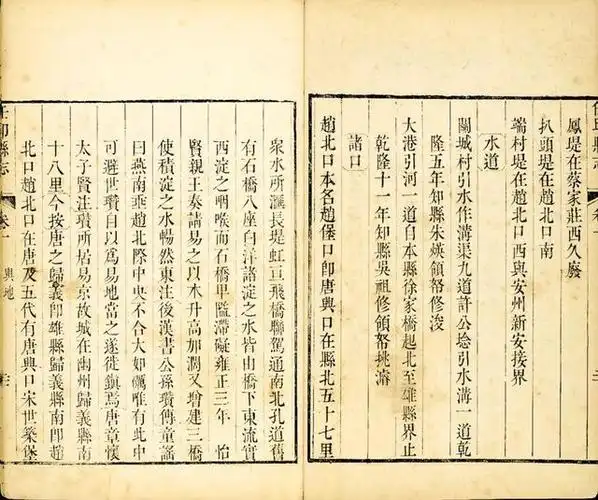 任邱縣志
卷一
鳳堤在蔡家莊西久廢
扒頭堤在趙北口南
端村堤在趙北口西與安州新安接界
水道
關城村引水作溝渠九道許公埝引水溝一道乾
隆五年知縣朱煐領帑修浚
大港引河一道自本縣徐家橋起北至雄縣界止
乾隆十一年知縣吳祖修領帑挑濬
諸口
趙北口本名趙堡口卽唐興口在縣北五十七里
衆水所滙長堤虹亘飛橋聯駕通南北孔道舊
有石橋八座白洋諸淀之水皆由橋下東流實
西淀之咽喉而石橋𤰞隘滯礙雍正三年 怡
賢親王奏請易之以木升高加濶又增建三橋
使積淀之水暢然東注後漢書公孫瓚傳童謠
曰燕南垂趙北際中央不合大如礪唯有此中
可避世瓚自以爲易地當之遂徙鎮焉唐章懷
太子賢注瓚所居易京故城在幽州歸義縣南
十八里今按唐之歸義卽雄縣歸義縣南卽趙
北口趙北口在唐及五代有唐興口宋世築堡
任邱縣志
卷一
輿地